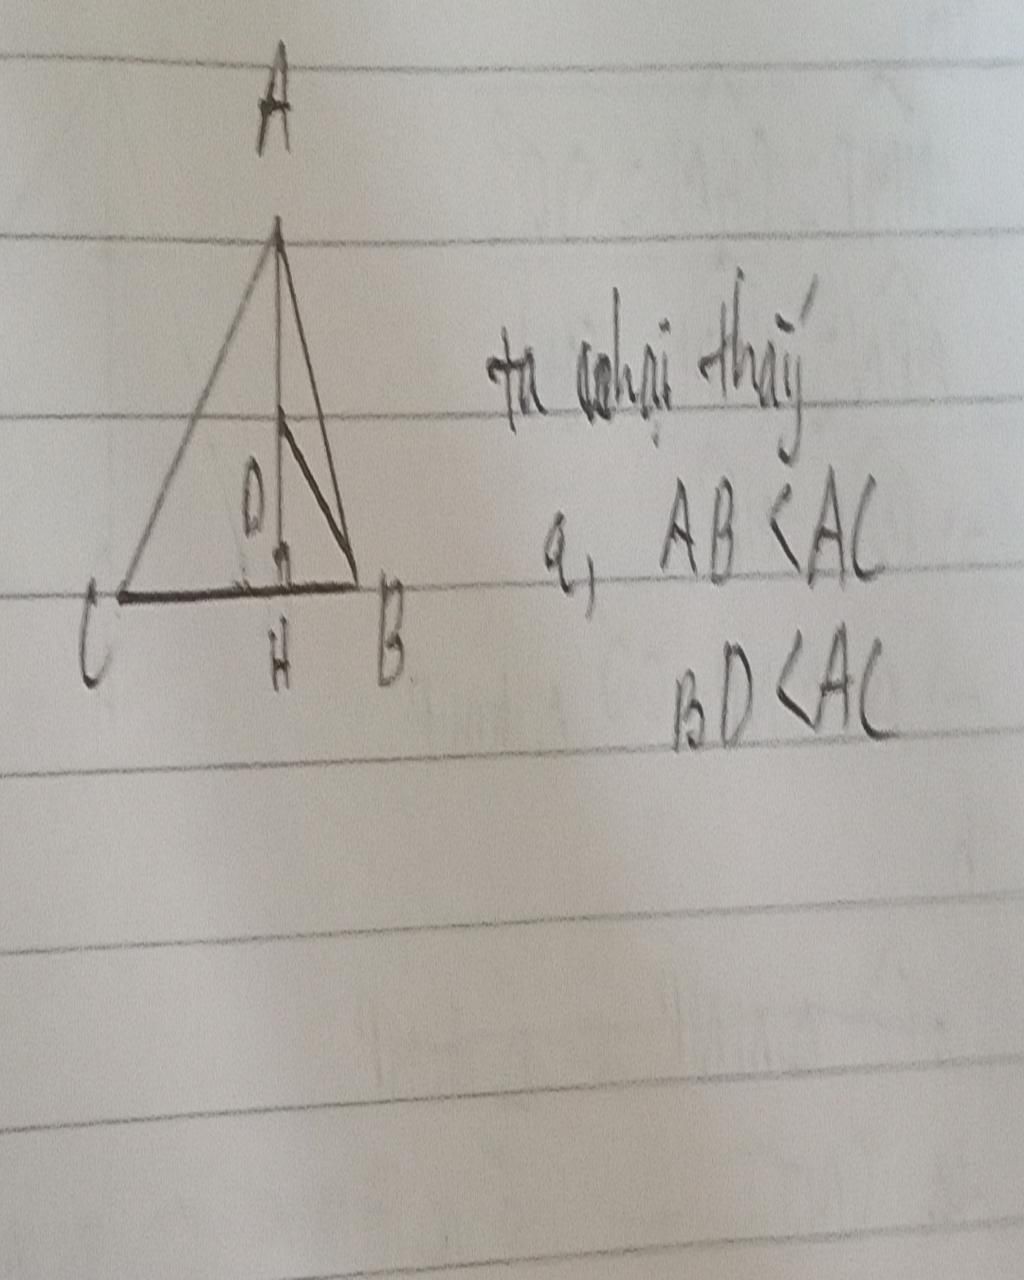 A
ta thấy
D
a, AB < AC
C H B
BD < AC